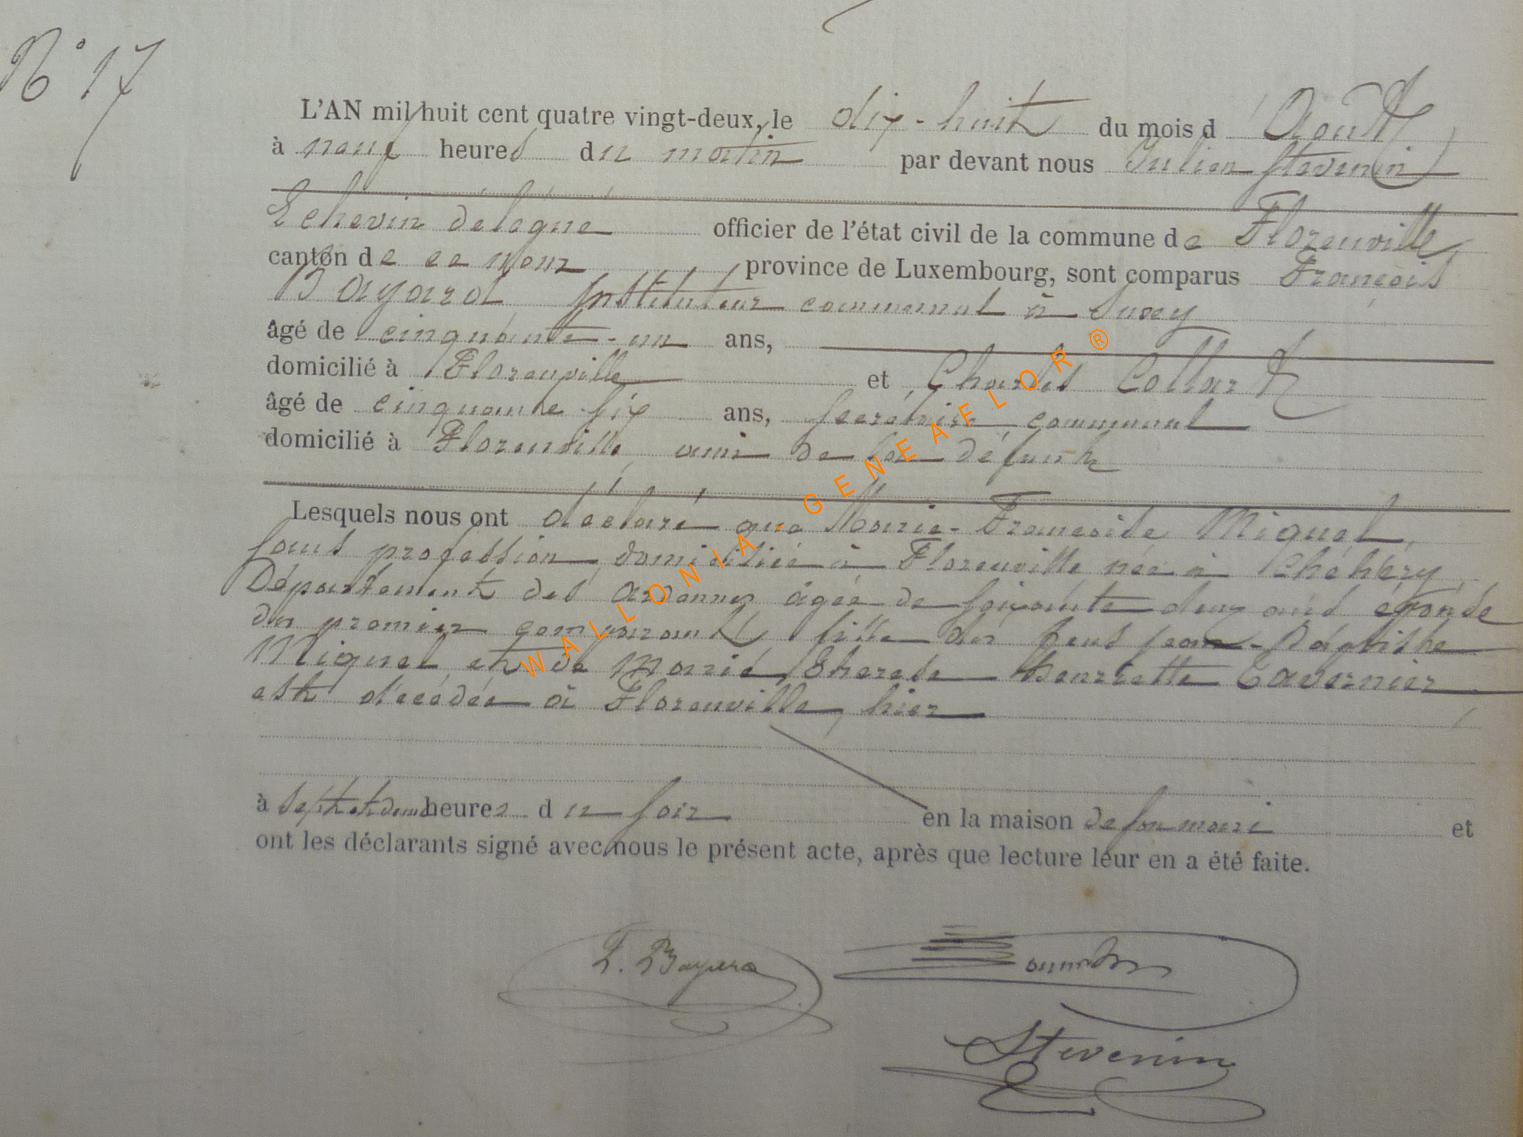 N° 17
L'AN mil huit cent quatre vingt-deux, le dix-huit du mois d'Août
à neuf heures du matin par devant nous Julien Stevenin
Echevin délégué officier de l'état civil de la commune de Florenville
canton de ce nom province de Luxembourg, sont comparus François
Bayard Instituteur communal à Suxy
âgé de cinquante-un ans,
domicilié à Florenville et Charles Collart
âgé de cinquante six ans, secrétaire communal
domicilié à Florenville, ami de la défunte
Lesquels nous ont déclaré que Marie-Françoise Miguel,
sans profession, domiciliée à Florenville née à Chéhéry,
Département des Ardennes âgée de soixante deux ans épouse
du premier comparant, fille des feus Jean-Baptiste
Miguel et de Marie Thérèse Henriette Tavernier
est décédée à Florenville, hier
à sept et demie heures du soir en la maison de son mari et
ont les déclarants signé avec nous le présent acte, après que lecture leur en a été faite.
F. Bayard
Stevenin
WALLONIA GENEAFLOR ®